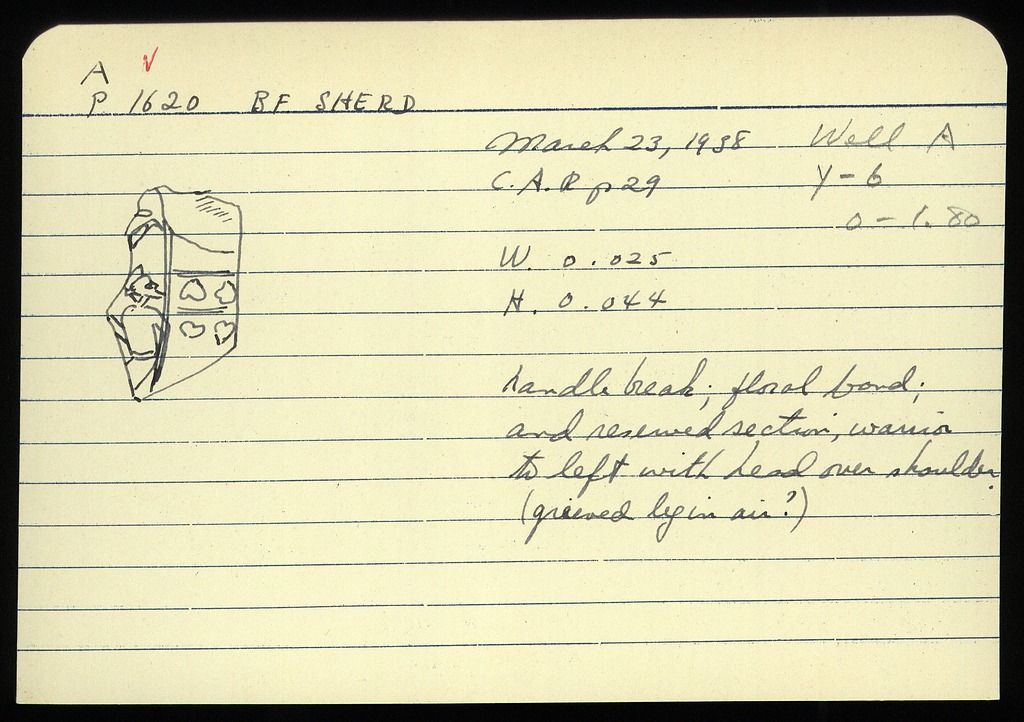 A ✓
P 1620 BF SHERD
March 23, 1938 Well A
C.A.R p 29 Y-6
0-1.80
W. 0.025
H. 0.044
handle break; floral band;
and reserved section, warrior
to left with head over shoulder.
(greaved leg in air?)